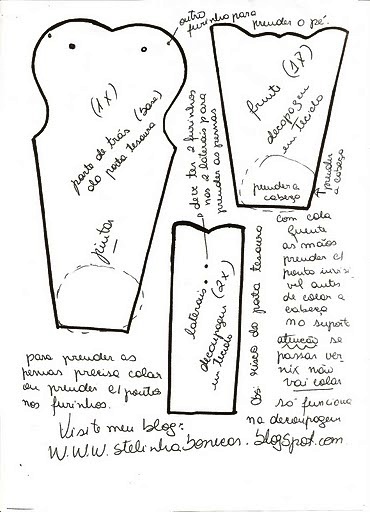 outro
furinho para
prender o pé.
(1X)
parte de trás (base)
do porta tesoura
pintar
frente (1X)
decopagem
em tecido
prender a
cabeça
prender
a cabeça
deve ter 2 furinhos
nas 2 laterais para
prender as pernas
laterais
decoupagem (2X)
em tecido
Obs: risco do porta tesoura
com cola
quente
as mãos
prender c/
ponto invisi
vel antes
de colar a
cabeça
no suporte
atenção se
passar ver
nix não
vai colar
só funciona
na decoupagem
para prender as
pernas precisa colar
ou prender c/ pontos
nos furinhos.
Visite meu blog:
W.W.W. stelinhabonecas.blogspot.com